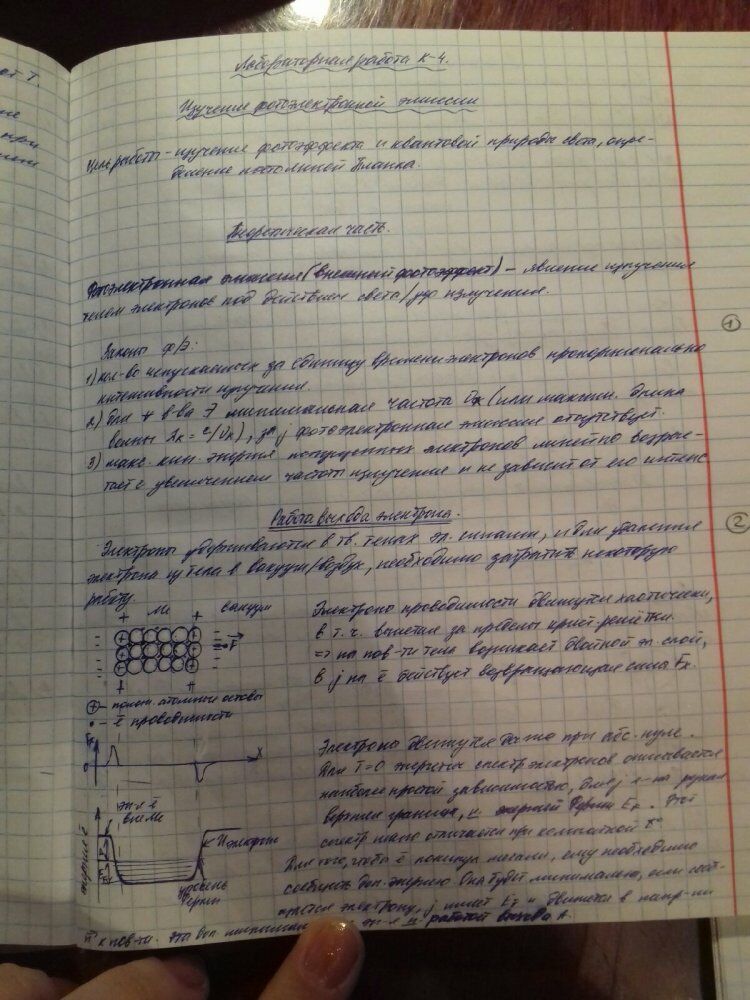 Лабораторная работа К-4.
Изучение фотоэлектронной эмиссии
Цель работы - изучение фотоэффекта и квантовой природы света, опре-
деление постоянной Планка.
Теоретическая часть.
Фотоэлектронная эмиссия (внешний фотоэффект) - явление испускания
телом электронов под действием света/ излучения.
Законы ф/э:
1) кол-во испускаемых за единицу времени электронов пропорционально
интенсивности излучения.
2) для ∀ в-ва ∃ минимальная частота νк (или максим. длина
волны λк = c/νк), за j фотоэлектронная эмиссия отсутствует.
3) макс. кин. энергия электронов линейно возрас-
тает с увеличением частоты излучения и не зависит от его интенс
Работа выхода электрона.
Электроны удерживаются в тв. телах эл. силами, и для удаления
электрона из тела в вакуум/воздух, необходимо затратить некоторую
работу.
Ме вакуум
F
⊕ - полож. атомные остовы
• - ē проводимости
Электроны проводимости движутся хаотически,
в т.ч. вылетая за пределы крист. решётки.
=> на пов-ти тела возникает двойной эл. слой,
в j на ē действует возвращающая сила Fx.
Fx
0
x
эн-я ē
в Ме
энергия ē
уровень
Ферми
Электроны движутся даже при абс. нуле.
Для T=0 энергия спектр электронов описывается
наиболее простой зависимостью, для j х-на резкая
верхняя граница, энергией Ферми EF. Этот
спектр мало отличается при комнатной T°
Для того, чтобы ē покинул металл, ему необходимо
сообщить доп. энергию. Она будет минимальна, если сооб-
щается электрону, j имеет EF и движется в напр-ии
n к пов-ти. Эта доп. эн-я работой выхода A.
1
2